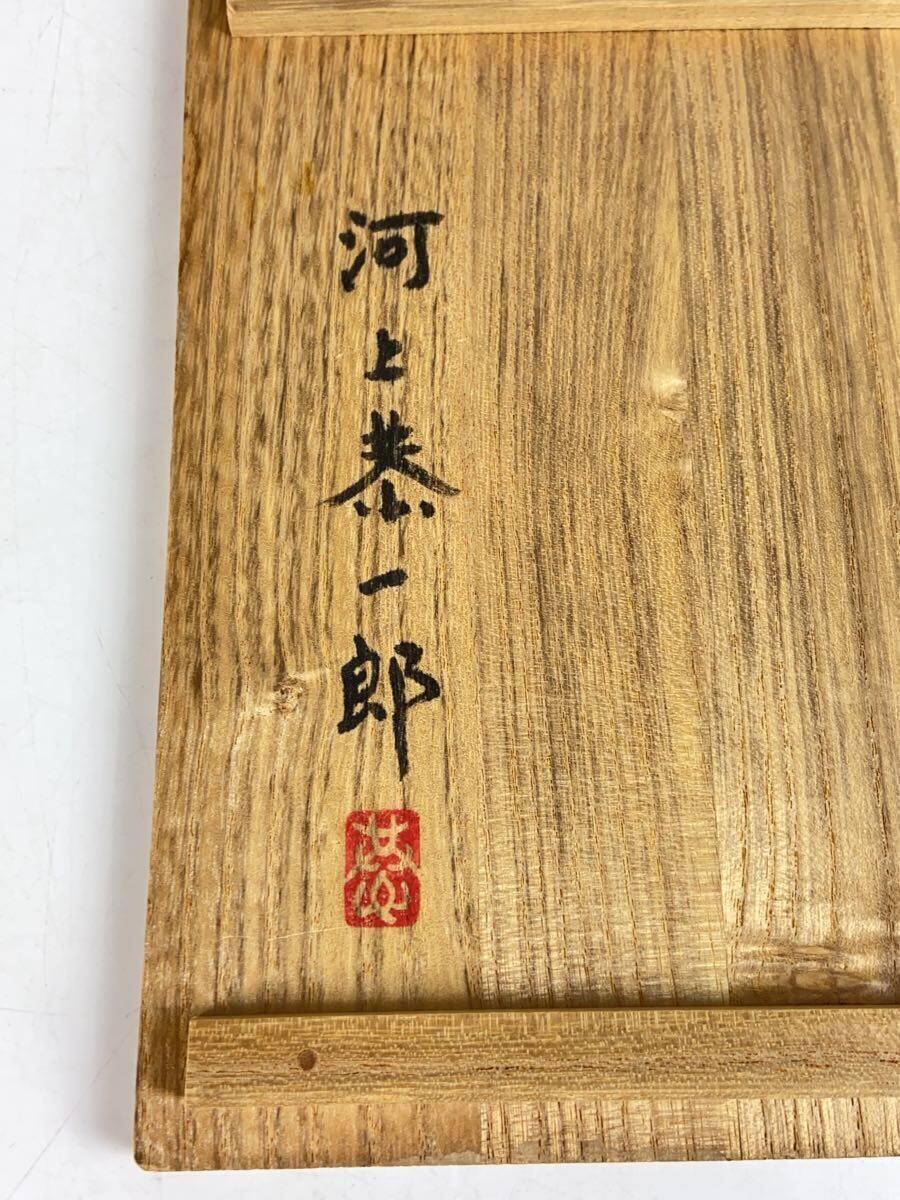 河上恭一郎
恭